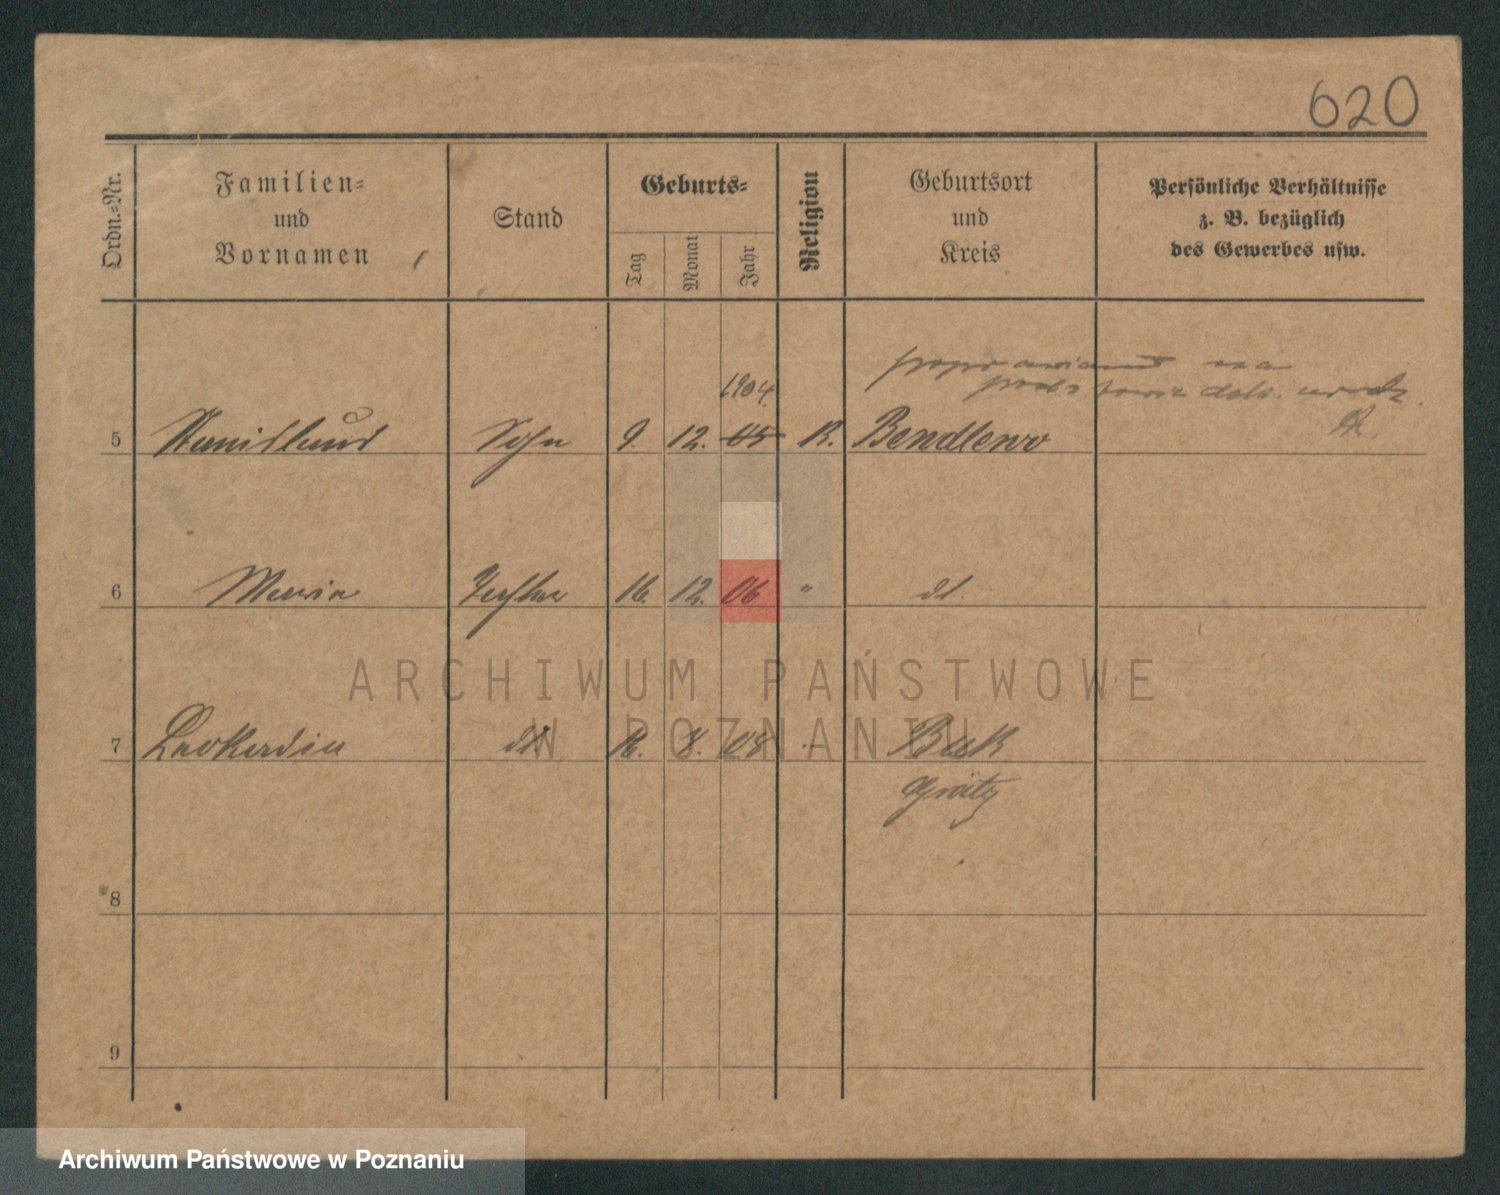 620
Ordn.-Nr.
Familien-
und
Vornamen
Stand
Geburts-
Tag
Monat
Jahr
Religion
Geburtsort
und
Kreis
Persönliche Verhältnisse
z. B. bezüglich
des Gewerbes usw.
na
1904.
5 Stanislaus Sohn 9. 12. 05 R. Bendlewo
6 Maria Tochter 16. 12. 06 " dt.
ARCHIWUM PAŃSTWOWE
W POZNANIU
7 Leokardia dt 8. 08 Buk
Grätz
8
9
Archiwum Państwowe w Poznaniu